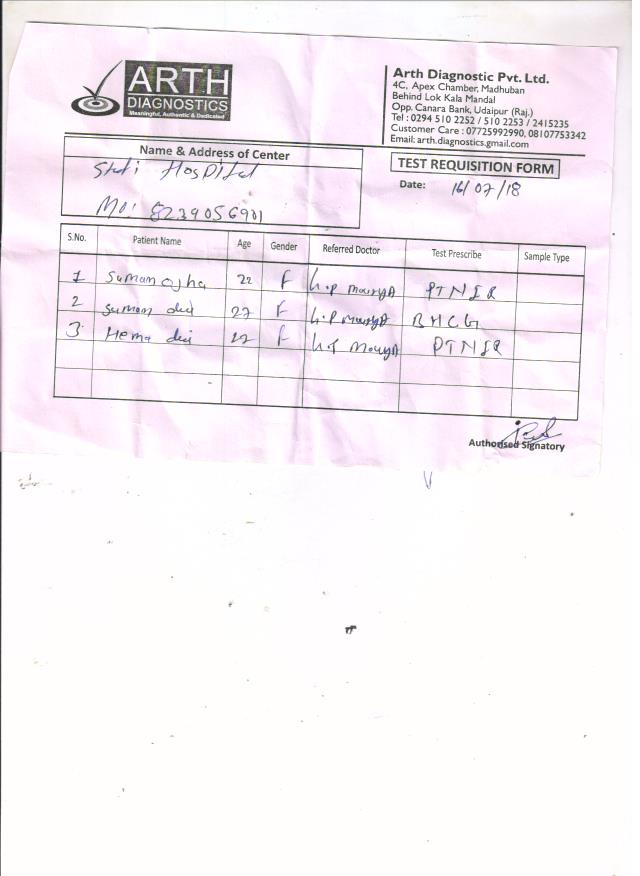 ARTH
DIAGNOSTICS
Meaningful, Authentic & Dedicated
Arth Diagnostic Pvt. Ltd.
4C, Apex Chamber, Madhuban
Behind Lok Kala Mandal
Opp. Canara Bank, Udaipur (Raj.)
Tel : 0294 510 2252 / 510 2253 / 2415235
Customer Care : 07725992990, 08107753342
Email: arth.diagnostics.gmail.com
Name & Address of Center
HosPital
Mo: 8239056901
TEST REQUISITION FORM
Date: 16/07/18
S.No. Patient Name Age Gender Referred Doctor Test Prescribe Sample Type
1 Suman ojha 22 F h.p mouryA PTNIR
2 Suman devi 27 F h.p mouryA BHCG
3 Hema devi 22 F h.p mouryA PTNIR
Authorised Signatory